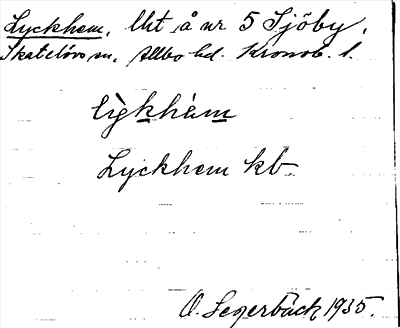 Lyckhem, lht å nr 5 Sjöby,
Skatelövs sn, Allbo hd. Kronob. l.
lỳkhèm
Lyckhem kb
O. Segerbäck 1935.